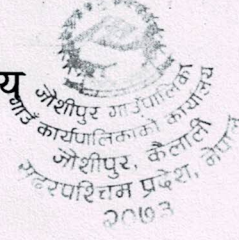 य
जोशीपुर गाउँपालिका
गाउँ कार्यपालिकाको कार्यालय
जोशीपुर, कैलाली
सुदूरपश्चिम प्रदेश, नेपाल
२०७३